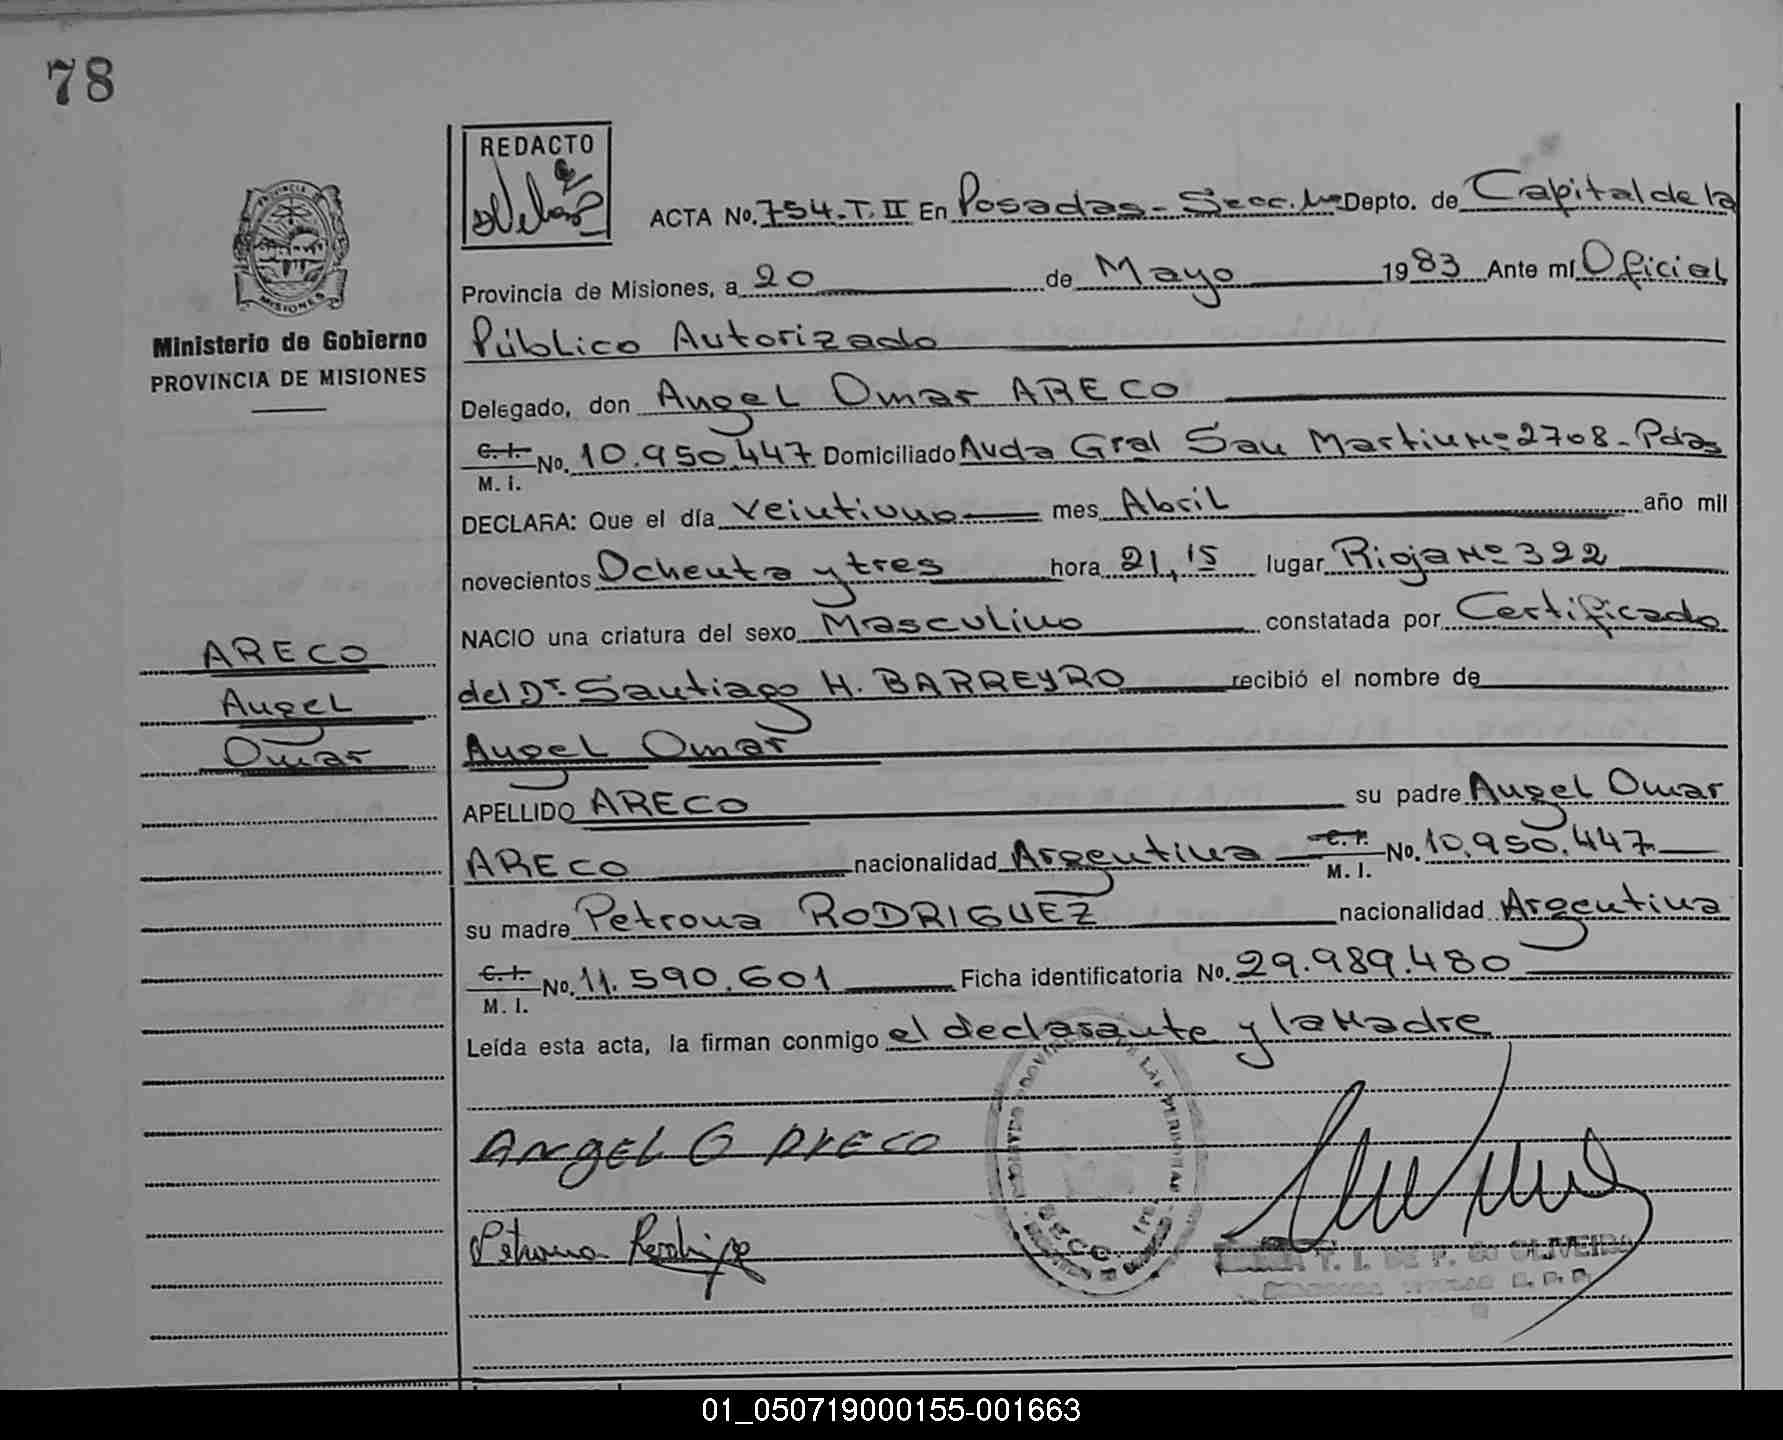 78
REDACTO
PROVINCIA
MISIONES
Ministerio de Gobierno
PROVINCIA DE MISIONES
ACTA No. 754-T.II En Posadas - Secc. 1ra Depto. de Capital de la
Provincia de Misiones, a 20 de Mayo 1983 Ante mí Oficial
Público Autorizado
Delegado, don Angel Omar ARECO
C.I. M.I. No. 10.950.447 Domiciliado Avda Gral San Martin Nº 2708 - Pdas
DECLARA: Que el día veintiuno mes Abril año mil
novecientos Ochenta y tres hora 21,15 lugar Rioja Nº 322
NACIO una criatura del sexo Masculino constatada por Certificado
del Dr. Santiago H. BARREYRO recibió el nombre de
Angel Omar
APELLIDO ARECO su padre Angel Omar
ARECO nacionalidad Argentina C.I. M.I. No. 10.950.447
su madre Petrona RODRIGUEZ nacionalidad Argentina
C.I. M.I. No. 11.590.601 Ficha identificatoria No. 29.989.480
Leída esta acta, la firman conmigo el declarante y la Madre
ARECO
Angel
Omar
Angel O Areco
Petrona Rodriguez
T. I. DE F. de OLIVEIRA
01_050719000155-001663